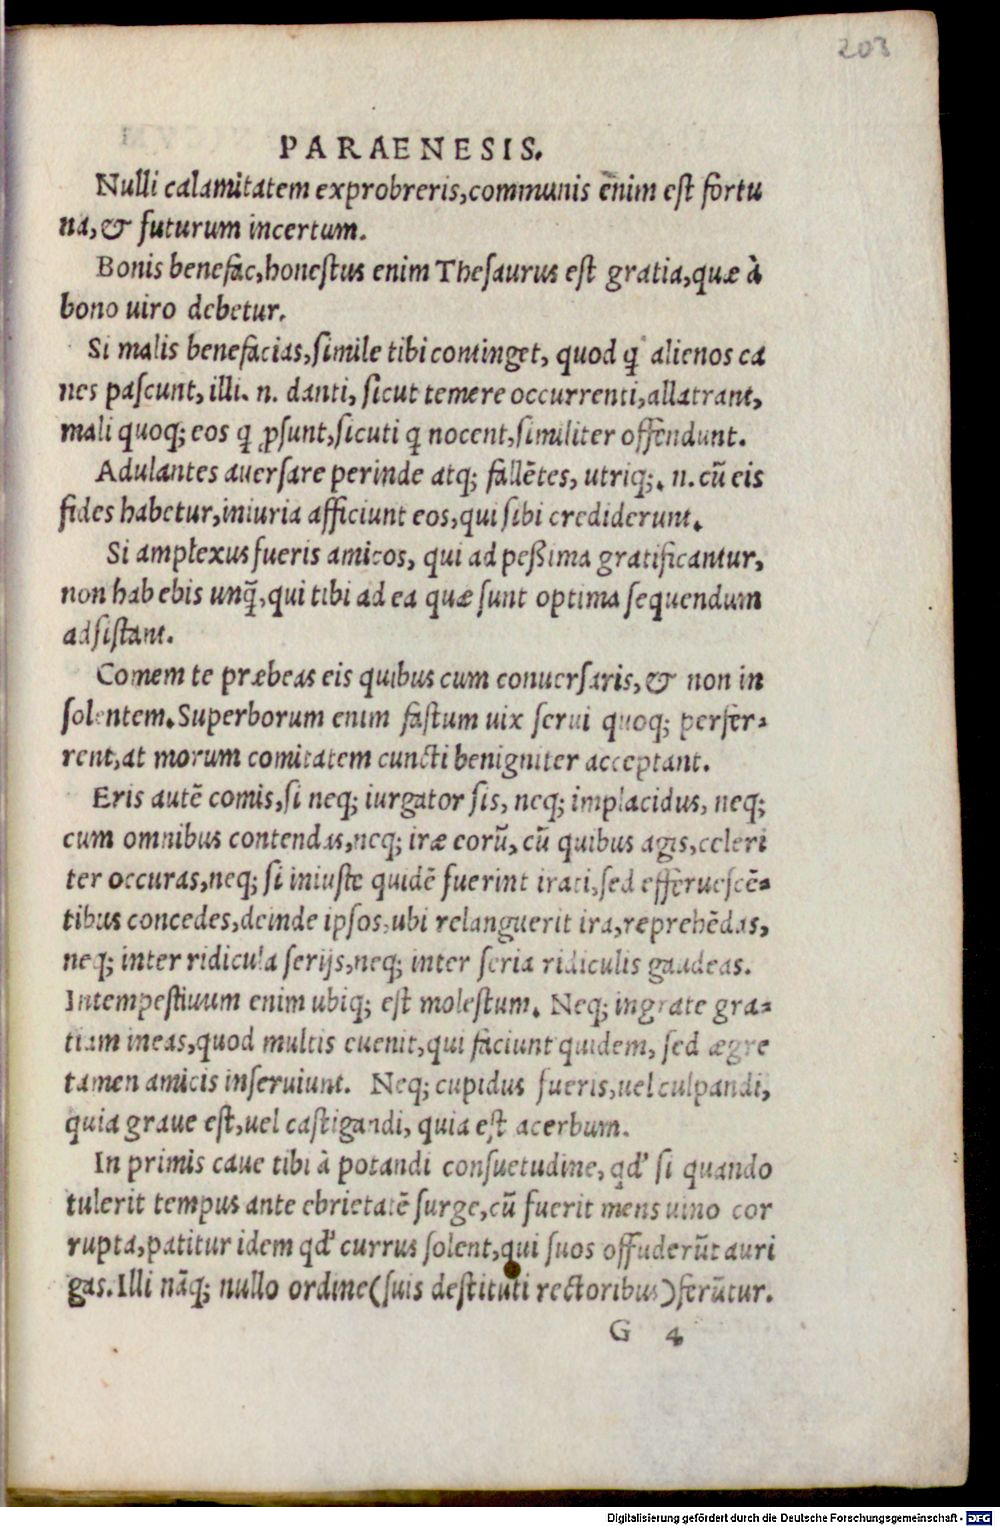 203
PARAENESIS.
Nulli calamitatem exprobreris,communis enim est fortu
na,& futurum incertum.
Bonis benefac,honestus enim Thesaurus est gratia,quæ à
bono uiro debetur.
Si malis benefacias,simile tibi continget, quod q̃ alienos ca
nes pascunt, illi. n. danti, sicut temere occurrenti,allatrant,
mali quoq; eos q̃ ꝓsunt,sicuti q̃ nocent,similiter offendunt.
Adulantes auersare perinde atq; fallẽtes, utriq;. n. cũ eis
fides habetur,iniuria afficiunt eos,qui sibi crediderunt.
Si amplexus fueris amicos, qui ad peßima gratificantur,
non hab ebis unq̃,qui tibi ad ea quæ sunt optima sequendum
adsistant.
Comem te præbeas eis quibus cum conuersaris,& non in
solentem.Superborum enim fastum uix serui quoq; perfer-
rent,at morum comitatem cuncti benigniter acceptant.
Eris autẽ comis,si neq; iurgator sis, neq; implacidus, neq;
cum omnibus contendas,neq; iræ eorũ, cũ quibus agis,celeri
ter occuras,neq; si iniuste quidẽ fuerint irati,sed efferuescẽ-
tibus concedes,deinde ipsos,ubi relanguerit ira,reprehẽdas,
neq; inter ridicula serijs,neq; inter seria ridiculis gaudeas.
Intempestiuum enim ubiq; est molestum. Neq; ingrate gra-
tiam ineas,quod multis euenit,qui faciunt quidem, sed ægre
tamen amicis inseruiunt. Neq; cupidus fueris,uel culpandi,
quia graue est,uel castigandi, quia est acerbum.
In primis caue tibi à potandi consuetudine, qd' si quando
tulerit tempus ante ebrietatẽ surge,cũ fuerit mens uino cor
rupta,patitur idem qd' currus solent,qui suos offuderũt auri
gas.Illi nãq; nullo ordine(suis destituti rectoribus)ferũtur.
G 4
Digitalisierung gefördert durch die Deutsche Forschungsgemeinschaft - DFG